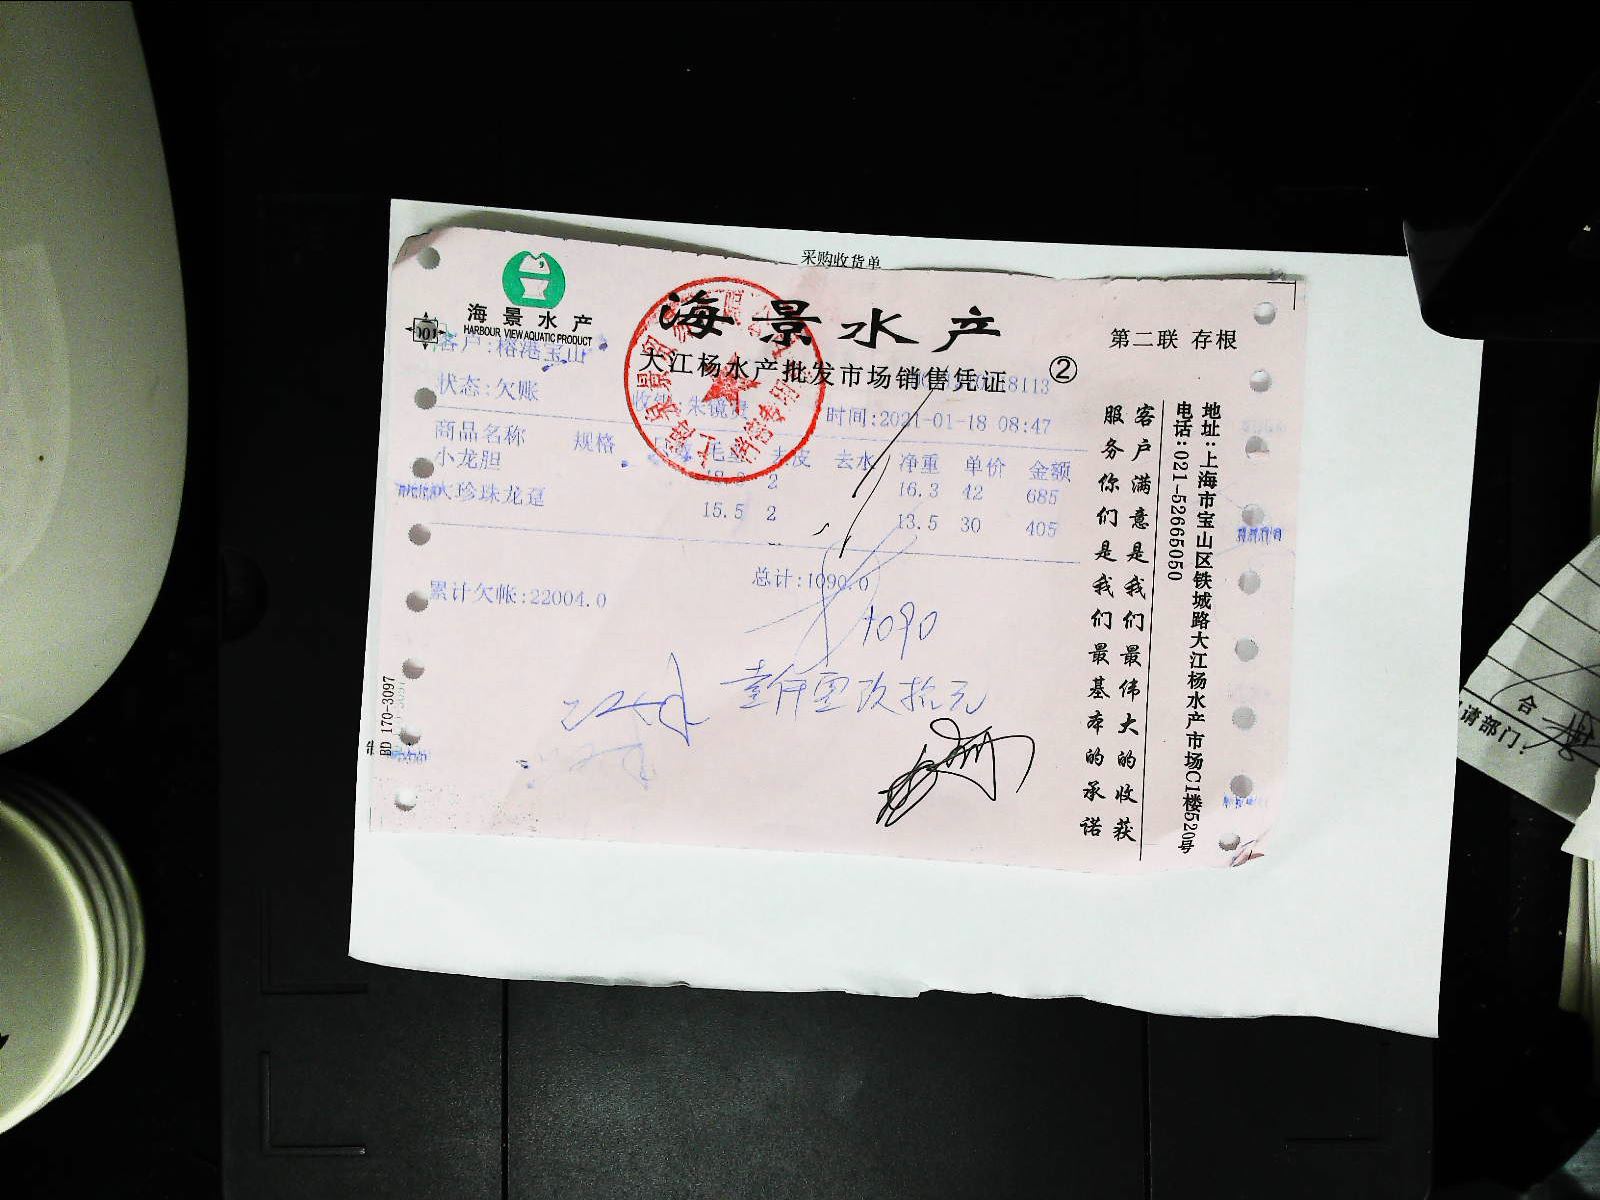 采购收货单
海景水产
HARBOUR VIEW AQUATIC PRODUCT
海景水产
大江杨水产批发市场销售凭证
②
第二联 存根
001
客户:榕港宝山
状态:欠账
时间:2021-01-18 08:47
商品名称 规格 毛重 去皮 去水 净重 单价 金额
小龙胆 2 16.3 42 685
大珍珠龙趸 15.5 2 13.5 30 405
总计:1090.0
累计欠帐:22004.0
1090
壹仟零玖拾元
BD 170-3097
客户满意是我们最伟大的收获
服务你们是我们最基本的承诺
地址:上海市宝山区铁城路大江杨水产市场C1楼520号
电话:021-52665050
合
请部门: